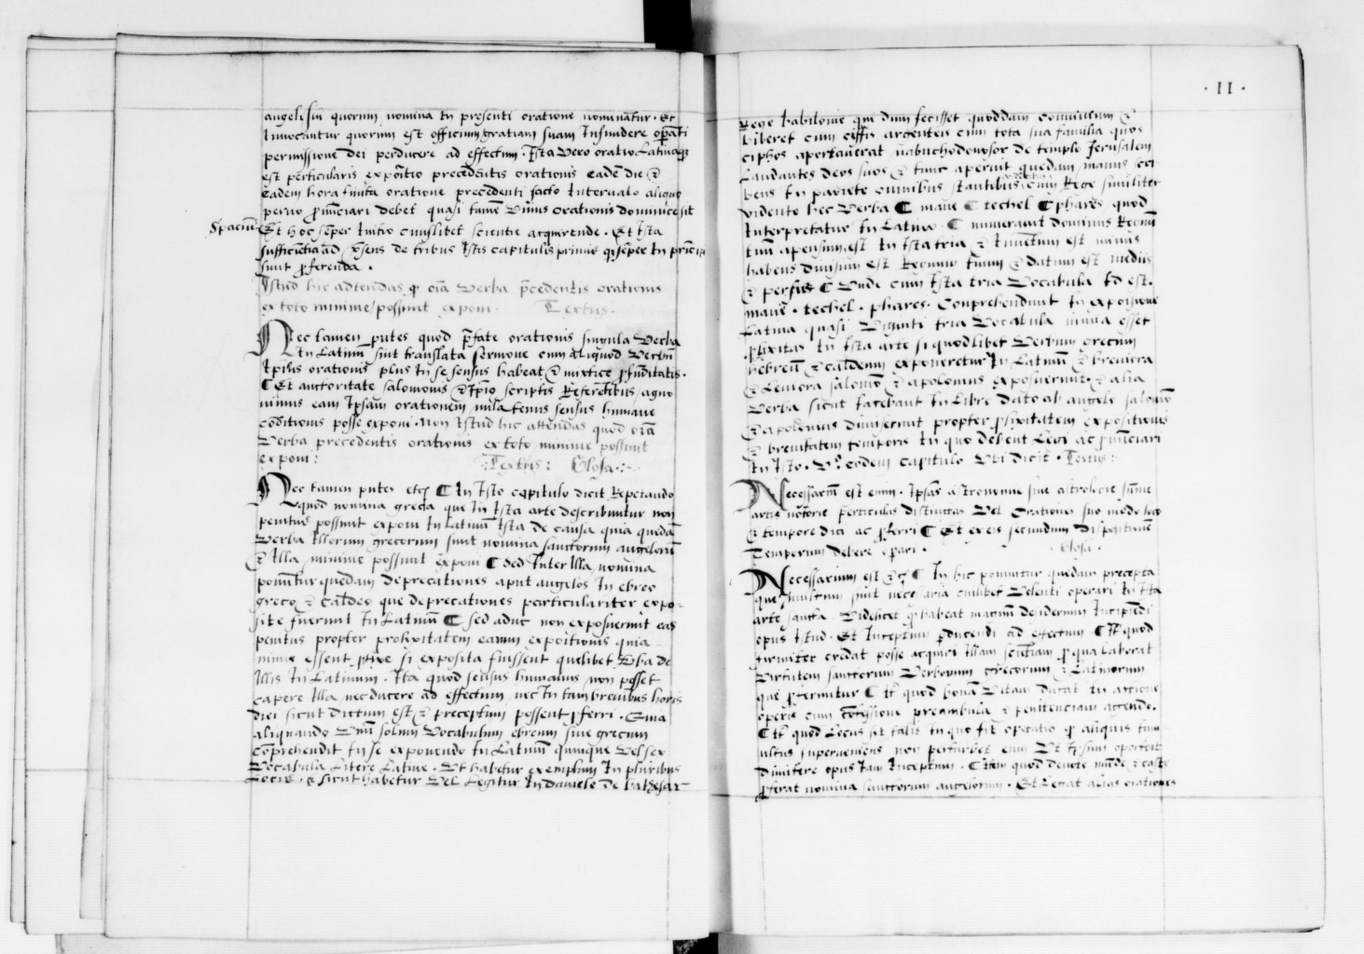 angeli sui quorum nomina in presenti oratione nominantur. Et
Invocantur quorum est officium gratiam suam Infundere operanti
permissione dei perducere ad effectum. Ista Vero oratio Latina
est particularis expositio precedentis orationis eadē die &
Eadem hora finita oratione precedenti facto Intervalo aliquo
pervo pronunciari debet quasi tamen Unius orationis dominice sit
Spacium
Et hoc semper Initio cuiuslibet scientie acquirende. Et Ista
sufficientia de tribus Istis capitulis primis semper in
sunt proferenda.
Istud hic adtendas q oīa Verba precedentis orationis
ex toto minime possunt exponi. Textus.
Nec tamen putes quod prefate orationis singula Verba
In Latinum sint translata sermone cum aliquod Verbum
Ipsius orationis plus In se sensus habeat & mistice profunditatis.
¶ Et auctoritate salomonis & Ipso scriptis Referentibus, agno
uimus eam Ipsam orationem nulla tenus sensus humane
conditionis posse exponi. Non Istud hic attendas quod oīa
Verba precedentis orationis ex toto minime possunt
exponi: :Textus: Glosa.
Nec tamen putes etc ¶ In Isto capitulo dicit Repetando
quod nomina greca que In Ista arte describuntur non
penitus possunt exponi In Latinum Ista de causa quia quedam
Verba Illorum grecorum sunt nomina sanctorum angelorum
& Illa minime possunt exponi ¶ Sed Inter Illa nomina
ponuntur quedam deprecationes aput angelos In ebreo
greco & caldeo que deprecationes particulariter expo-
site fuerunt In Latinum ¶ Sed aduc non exposuerunt eas
penitus propter prolixitatem earum expositionis quia
nimis essent prolixe si exposita fuissent quelibet Verba de
Illis In Latinum. Ita quod sensus humanus non posset
capere Illa nec ducere ad effectum nec In tam brevibus horis
diei sicut dictum est & preceptum possent proferri. Quia
aliquando Unum solum Vocabulum ebreum sive grecum
comprehendit In se exponendo In Latinum quinque Vel sex
Vocabula Litere Latine. Ut habetur exemplum In pluribus
Locis. & sicut habetur Vel Legitur In daniele de balthesar
.11.
Rege babilonie qui dum fecisset quoddam convivium &
biberet cum ciffis argenteis cum tota sua familia quos
ciphos aportaverat nabuchodonosor de templo Jerusalem
Laudantes deos suos & tunc aperuit quedam manus scri
bens In pariete omnibus stantibus cum Rege similiter
vidente hec Verba ¶ mane ¶ techel ¶ phares quod
Interpretatur In Latina. ¶ numeravit dominus Regnum
tuum apensum est In statera & Inventum est minus
habens divisum est Regnum tuum & datum est mediis
& persis ¶ Unde cum Ista tria Vocabula Id est.
mane. techel. phares. Conprehendunt In expositione
Latina quasi Viginti tria Vocabula nimia esset
prolixitas In Ista arte si quodlibet Verbum grecum
hebreum & caldeum exponeretur In Latinum & breviora
& Leviora salomon & apolonius exposuerunt. & alia
Verba sicut Iacebant In Libro dato ab angelo salomon
& apolonius dimiserunt propter prolixitatem expositionis
& brevitatem temporis In quo debent Legi ac pronunciari
In Isto. eodem capitulo Ubi dicit. Textus:
Necessarium est enim. Ipsas astronomie sive astrologie
artis notorie particulas distinctas Vel Orationes suo modo loco
& tempore dici ac proferri ¶ Et ex eis secundum dispositionem
Temporum debere operari. Glosa.
Necessarium est & ¶ In hic ponuntur quedam precepta
que sunt necesaria cuilibet Volenti operari In Ista
arte sancta Videlicet quod habeat magnum desiderium Incipiendi
opus Istud. Et Inceptum perducendi ad effectum ¶ Item quod
firmiter credat posse acquiri Illam scientiam pro qua laborat
Virtutem sanctorum Verborum grecorum & Latinorum
que proferuntur ¶ Item quod bonam Vitam ducat In actione
operis cum confessione preambula & penitenciam agendo.
¶ Item quod Locus sit talis In quo fit operatio quod aliquis tum
ultus superveniens non perturbet eum Ut Ipsum oporteat
dimitere opus Iam Inceptum. ¶ Item quod devote munde & caste
proferat nomina sanctorum angelorum. Et Legat alias orationes